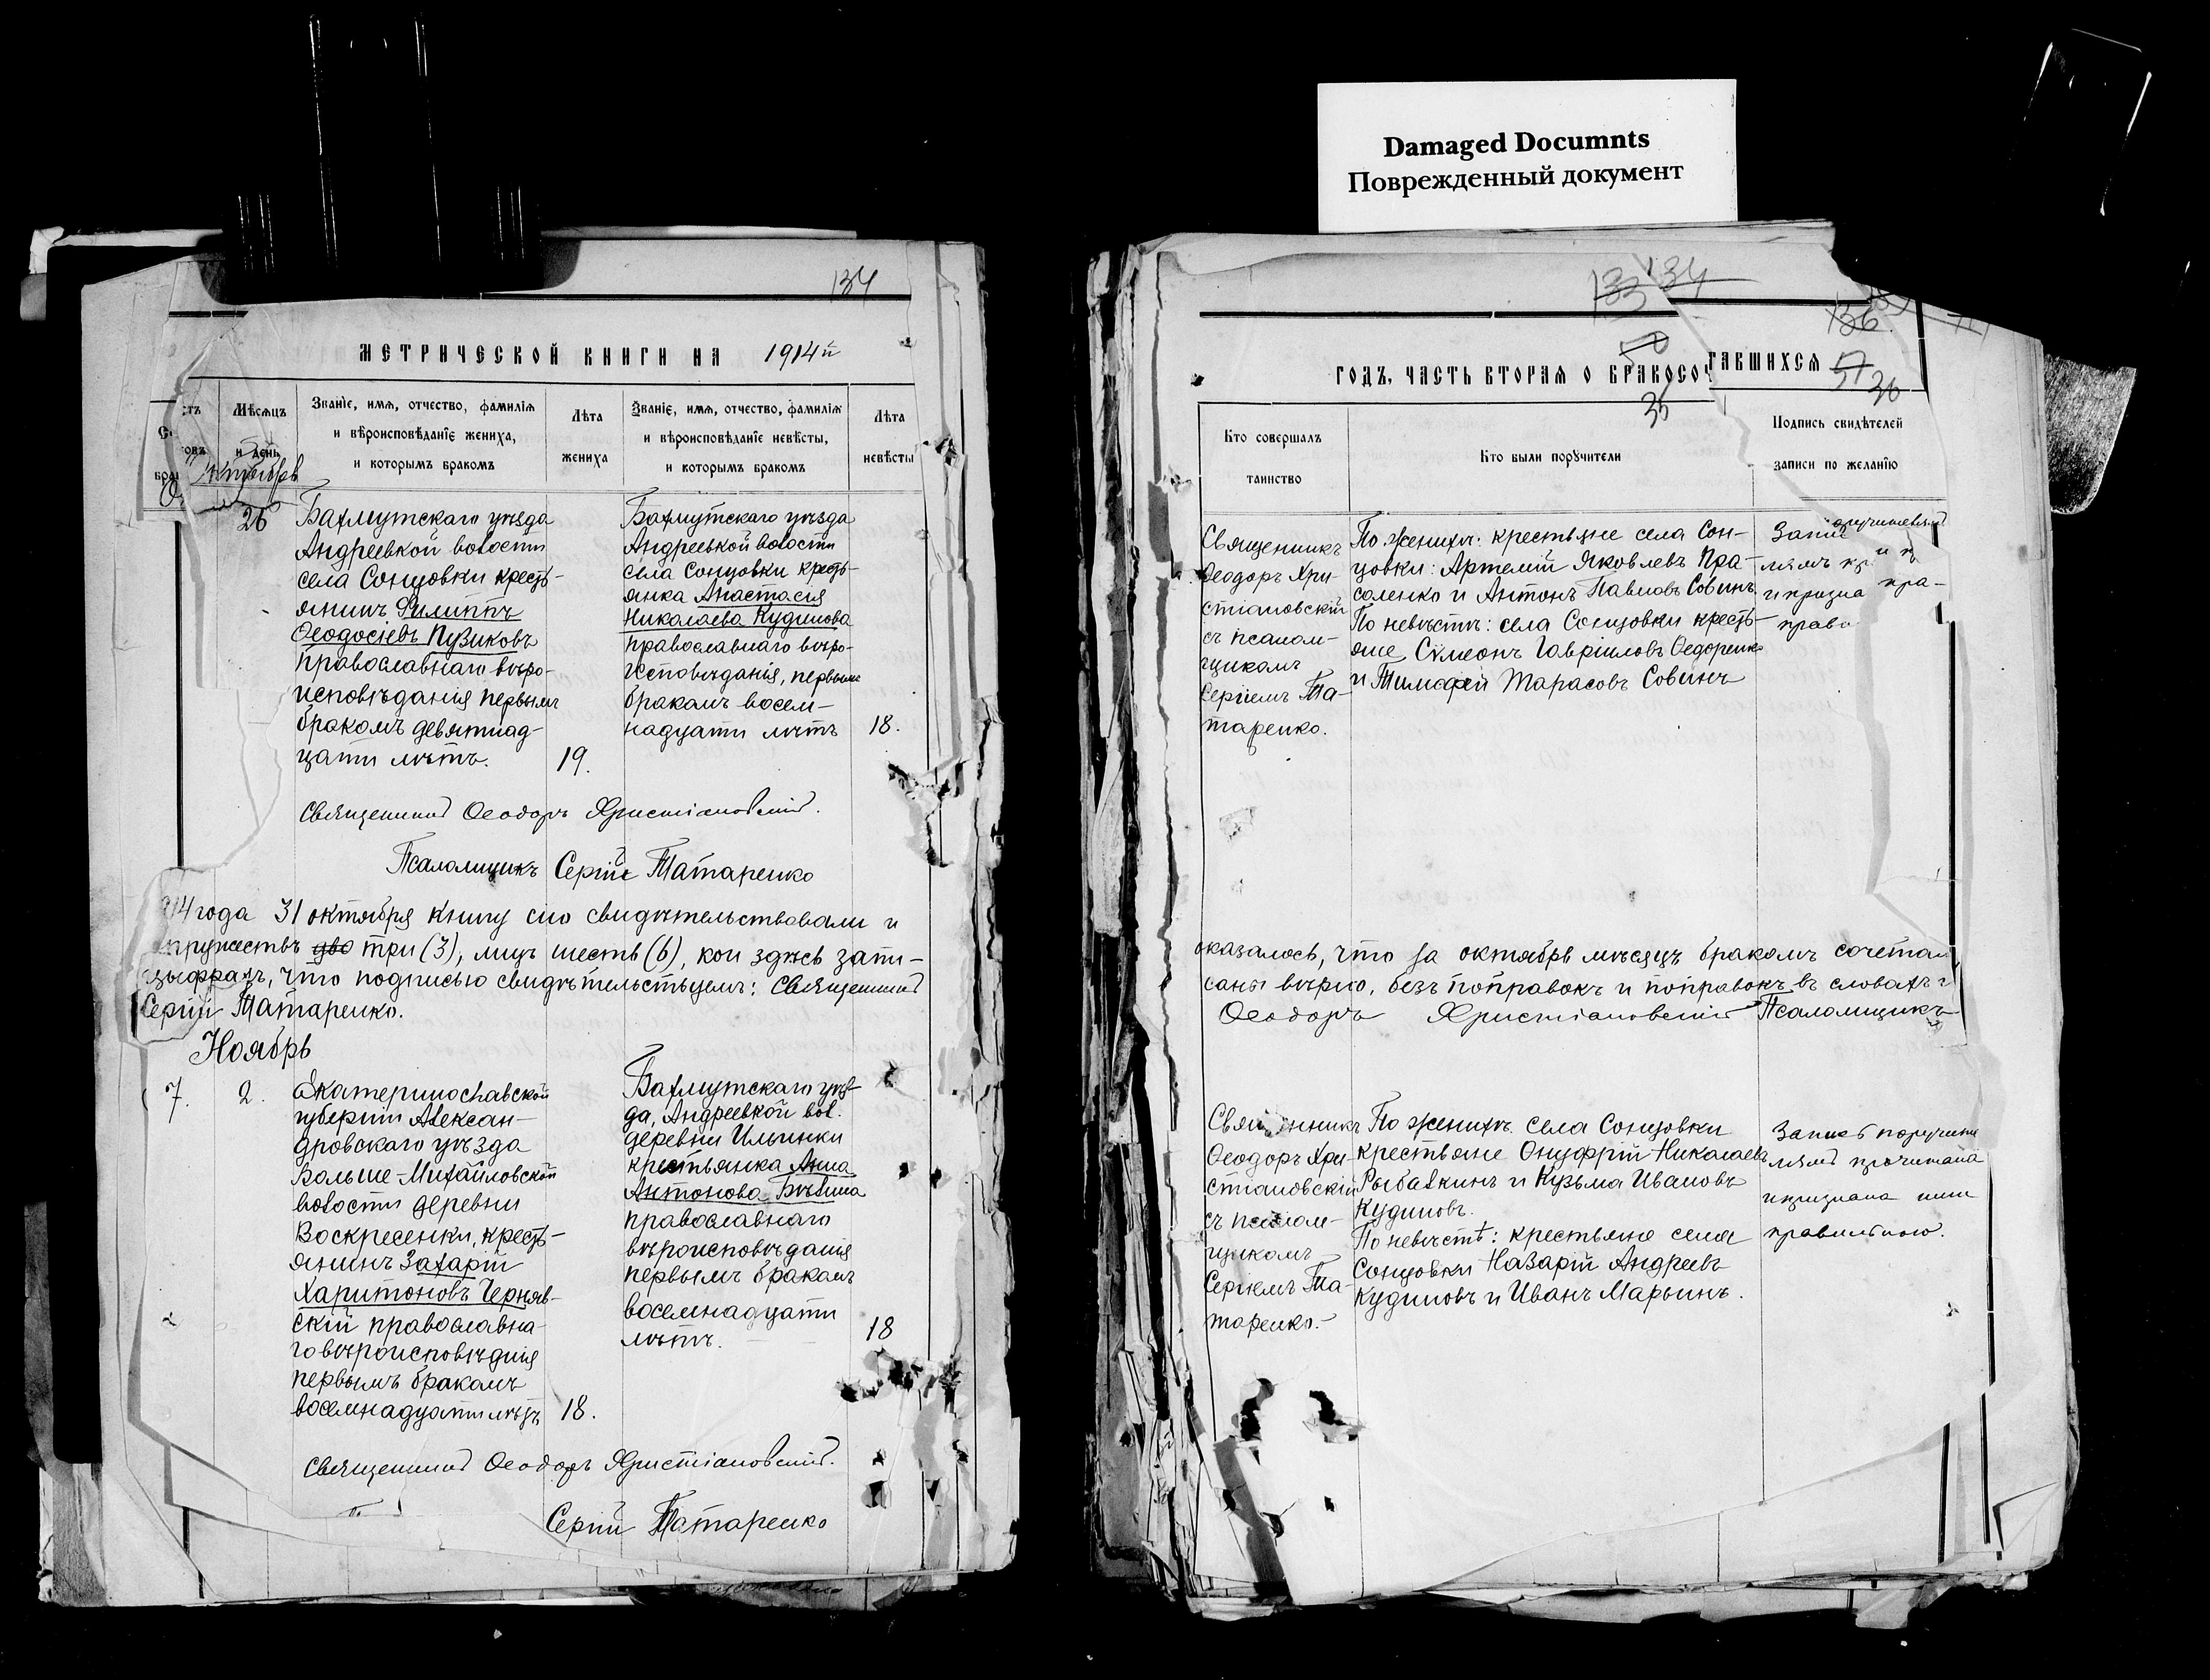 Damaged Documnts
Поврежденный документ
134
МЕТРИЧЕСКОЙ КНИГИ НА 1914й
Мѣсяцъ и день
Званіе, имя, отчество, фамилія и вѣроисповѣданіе жениха, и которымъ бракомъ
Лѣта жениха
Званіе, имя, отчество, фамилія и вѣроисповѣданіе невѣсты, и которымъ бракомъ
Лѣта невѣсты
Октябрь
26
Бахмутскаго уѣзда
Андреевкой волости
села Сонцовки кресть-
янинъ Филиппъ
Ѳеодосіевъ Пузиковъ
православнаго вѣро-
исповѣданія первымъ
бракомъ девятнад-
цати лѣтъ.
19.
Бахмутскаго уѣзда
Андреевкой волости
села Сонцовки кресть-
янка Анастасія
Николаева Кудинова
православнаго вѣро-
исповѣданія, первымъ
бракомъ восем-
надцати лѣтъ
18.
Священникъ Ѳеодоръ Христіановскій.
Псаломщикъ Сергій Татаренко
914 года 31 октября книгу сію свидѣтельствовали и
пружествъ два три (3), лицъ шесть (6), кои здѣсь запи-
цыфрахъ, что подписью свидѣтельствуемъ: Священникъ
Сергій Татаренко.
Ноябрь
7.
2.
Екатеринославской
губерніи Алексан-
дровскаго уѣзда
Больше-Михайловской
волости деревни
Воскресенки, кресть-
янинъ Захарій
Харитоновъ Черняв-
скій православна-
го вѣроисповѣднія
первымъ бракомъ
восемнадцати лѣтъ
18.
Бахмутскаго уѣз-
да, Андреевкой вол.
деревни Ильинки
крестьянка Анна
Антонова
православнаго
вѣроисповѣданія
первымъ бракомъ
восемнадцати
лѣтъ.
18
Священникъ Ѳеодоръ Христіановскій.
Сергій Татаренко
133 134
136
50
57
36
35
ГОДЪ, ЧАСТЬ ВТОРАЯ О БРАКОСОЧ ТАВШИХСЯ
Кто совершалъ таинство
Кто были поручители
Подпись свидѣтелей записи по желанію
Священникъ
Ѳеодоръ Хри-
стіановскій
съ псалом-
щикомъ
Сергіемъ Та-
таренко.
По женихѣ: крестьяне села Сон-
цовки: Артемій Яковлевъ Пра-
соленко и Антонъ Павловъ Совинъ
По невѣстѣ: села Сонцовки кресть-
яне Сѵмеонъ Гавріиловъ Ѳедоренко
и Тимоѳей Тарасовъ Совинъ
оказалось, что за октябрь мѣсяцъ бракомъ сочетан
саны вѣрно, безъ поправокъ и поправокъ въ словахъ и
Ѳеодоръ Христіановскій Псаломщикъ
Священникъ
Ѳеодоръ Хри-
стіановскій
съ псалом-
щикомъ
Сергіемъ Та-
таренко.-
По женихѣ: села Сонцовки
крестьяне Онуфрій Николаевъ
Рыбалкинъ и Кузьма Ивановъ
Кудиновъ.
По невѣстѣ: крестьяне села
Сонцовки Назарій Андреевъ
Кудиновъ и Иванъ Марьинъ.
Запись поручите
лямъ прочитана
и признана ими
правильною.